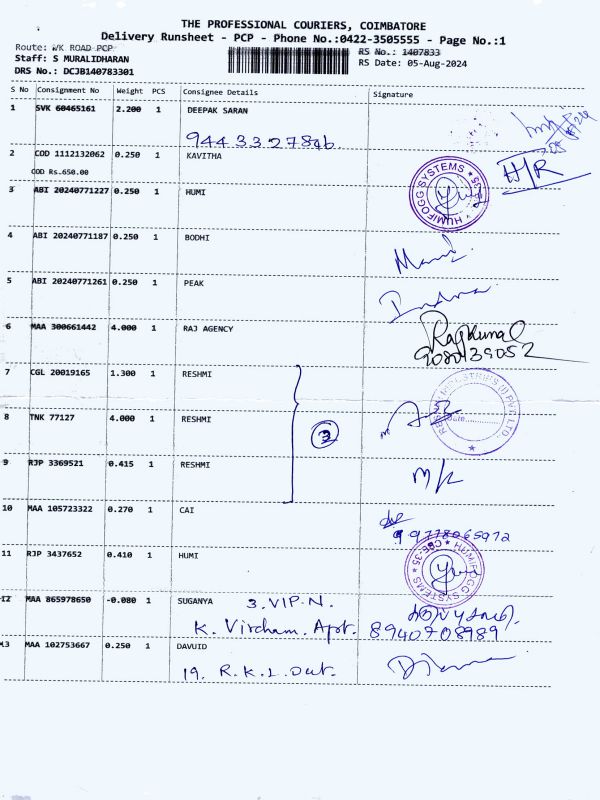 THE PROFESSIONAL COURIERS, COIMBATORE
Delivery Runsheet - PCP - Phone No.:0422-3505555 - Page No.:1
Route: WK ROAD PCP
RS No.: 1407833
Staff: S MURALIDHARAN
RS Date: 05-Aug-2024
DRS No.: DCJB140783301
S No Consignment No Weight PCS Consignee Details Signature
1 SVK 60465161 2.200 1 DEEPAK SARAN
944 33 27846.
2 COD 1112132062 0.250 1 KAVITHA
COD Rs.650.00
H/R
3 ABI 20240771227 0.250 1 HUMI
HUMIFOGG SYSTEMS
4 ABI 20240771187 0.250 1 BODHI
5 ABI 20240771261 0.250 1 PEAK
Indira
6 MAA 300661442 4.000 1 RAJ AGENCY
Rajkumal
9080139052
7 CGL 20019165 1.300 1 RESHMI
8 TNK 77127 4.000 1 RESHMI
3
9 RJP 3369521 0.415 1 RESHMI
M/R
10 MAA 105723322 0.270 1 CAI
9778065972
11 RJP 3437652 0.410 1 HUMI
HUMIFOGG SYSTEMS ★ CBE-35 ★
12 MAA 865978650 -0.080 1 SUGANYA 3. VIP. N.
K. Vircham. Apt. 8940708989
13 MAA 102753667 0.250 1 DAVUID
19. R. K. L. Out.